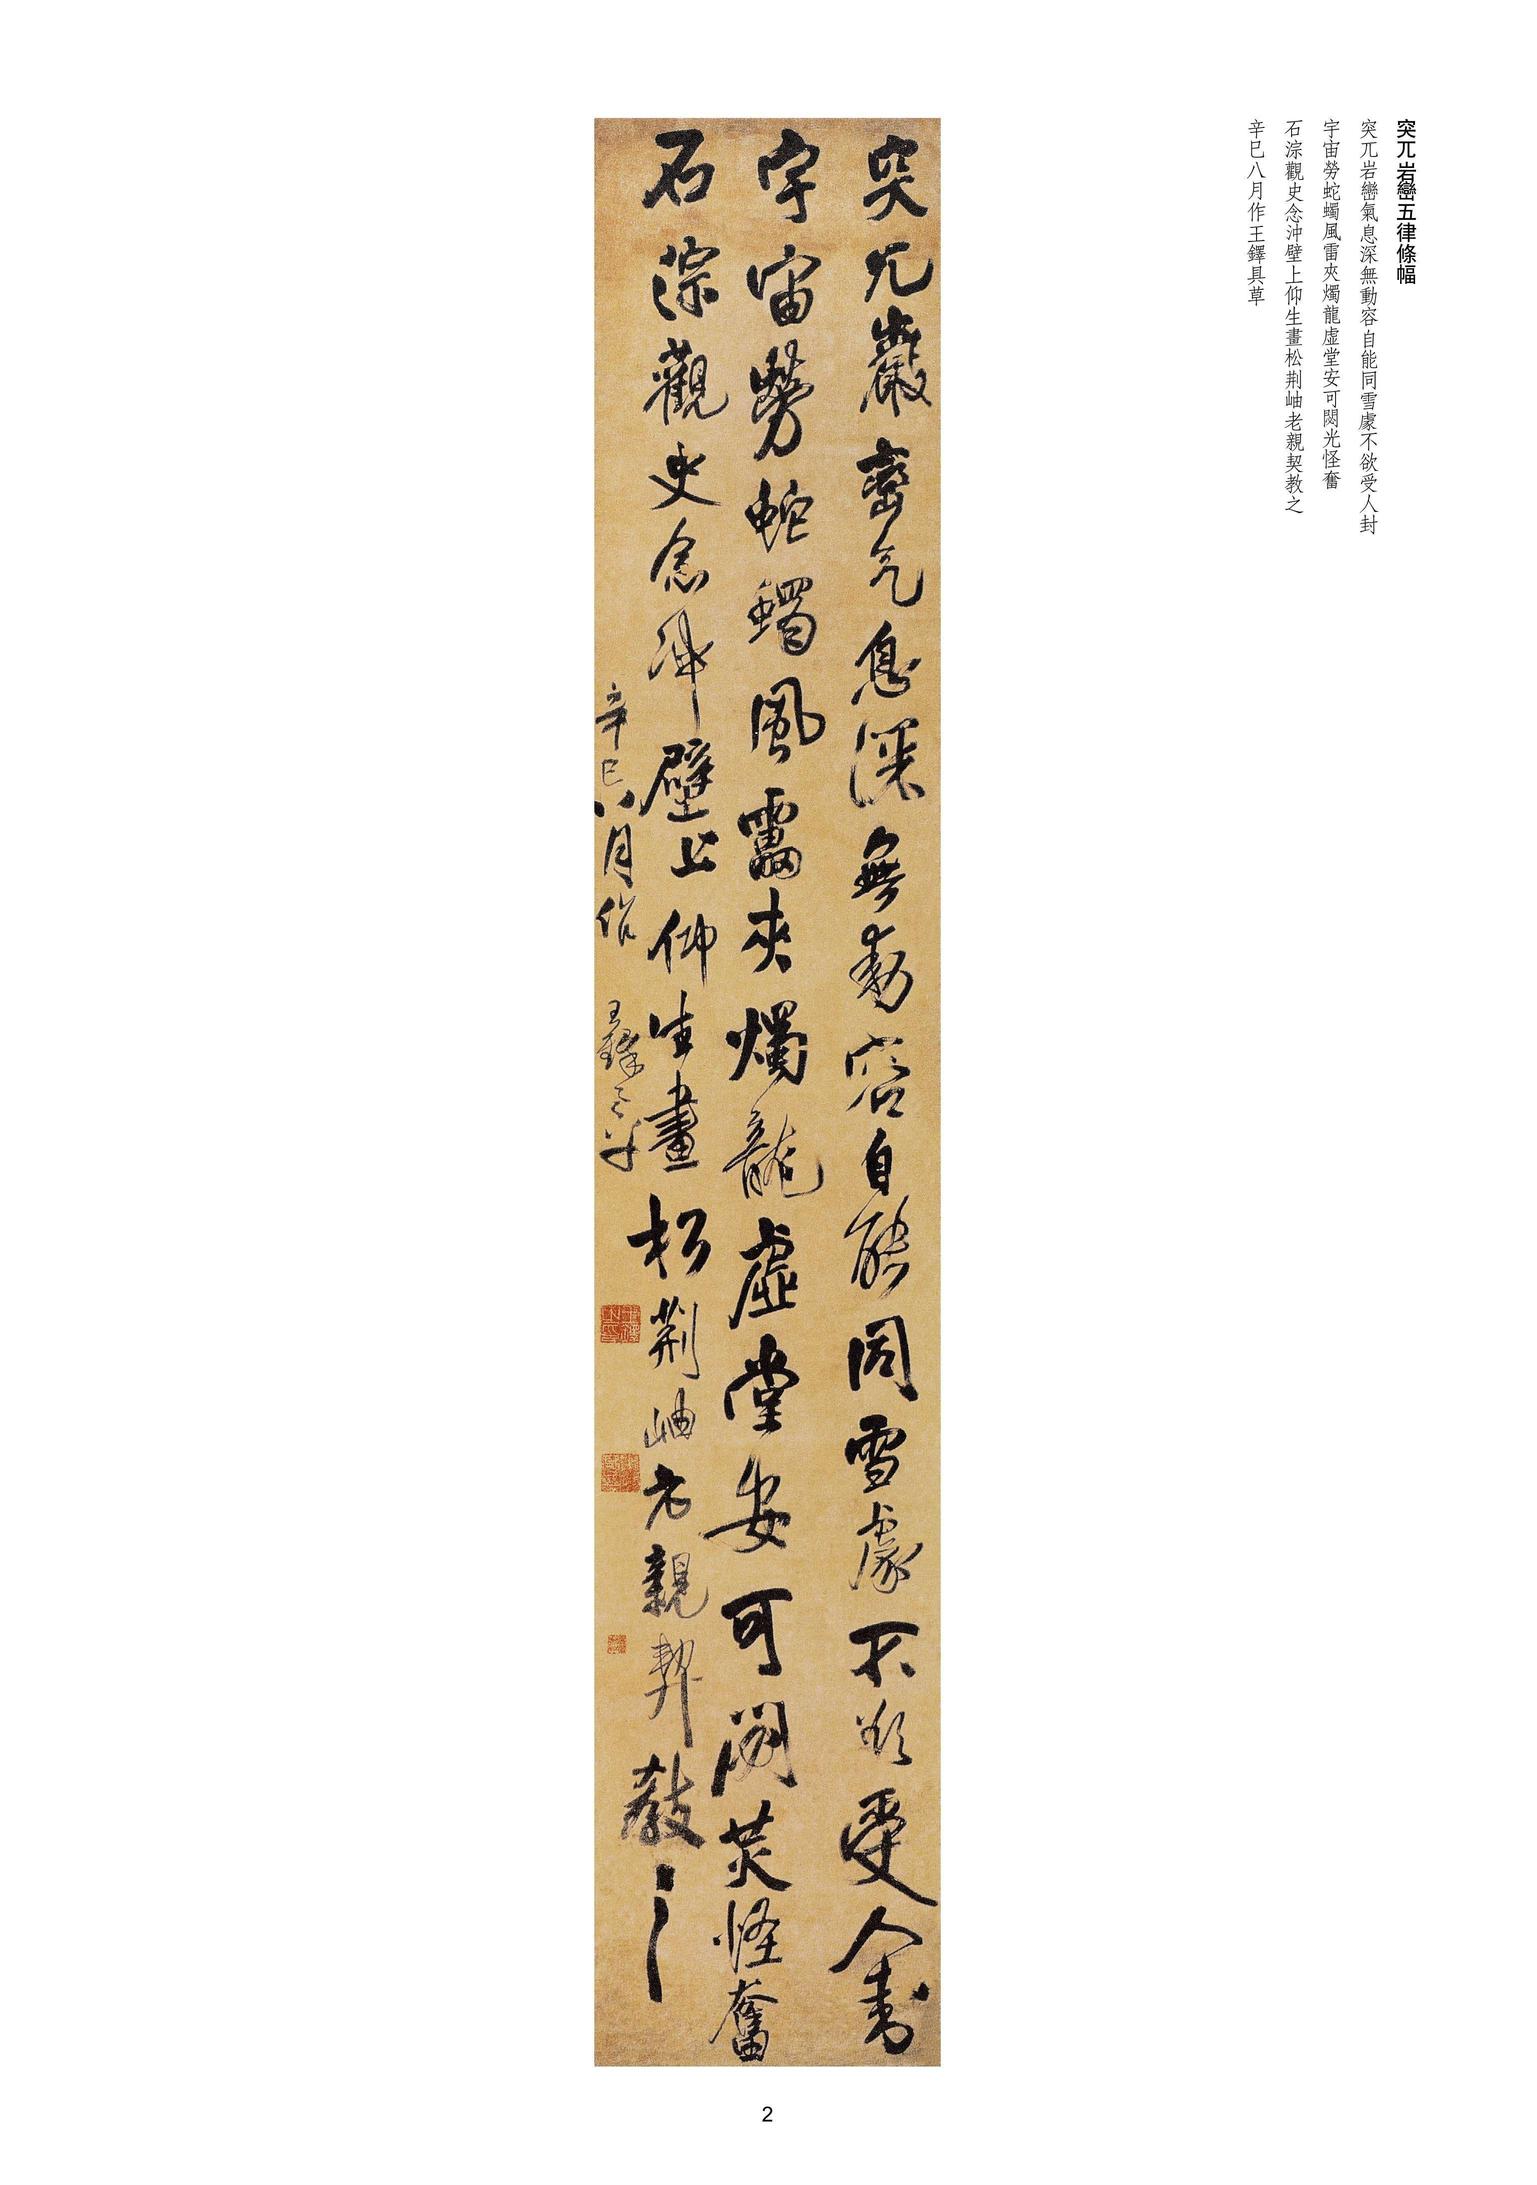 突兀岩巒五律條幅
突兀岩巒氣息深無動容自能同雪處不欲受人封
宇宙勞蛇蠋風雷夾燭龍虛堂安可閟光怪奮
石淙觀史念沖壁上仰生畫松荆岫老親契教之
辛巳八月作王鐸具草
突兀巖巒气息深無動容自能同雪處不欲受人封
宇宙勞蛇蠋風靁夾燭龍虛堂安可閟炗怪奮
石淙觀史念沖壁上仰生畫松荆岫老親契教之
辛巳八月作 王鐸具草
2